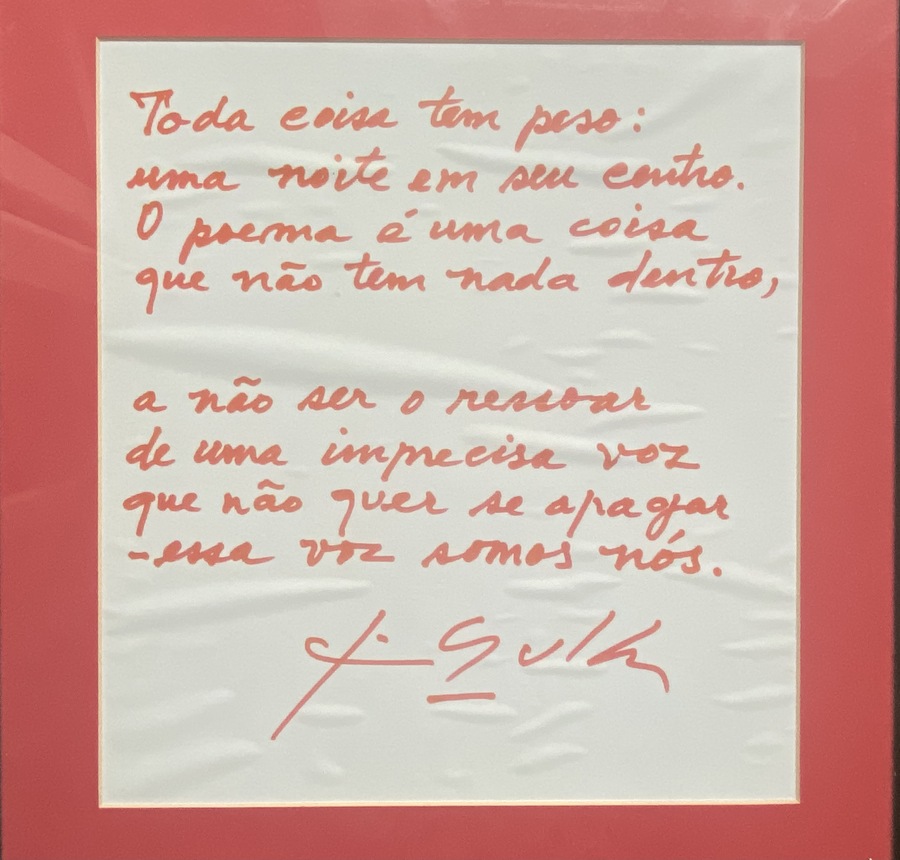 Toda coisa tem peso:
uma noite em seu centro.
O poema é uma coisa
que não tem nada dentro,
a não ser o ressoar
de uma imprecisa voz
que não quer se apagar
-essa voz somos nós.